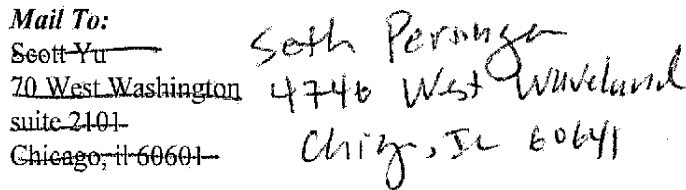 Mail To:
Scott Yu
70 West Washington
suite 2101
Chicago, il 60601
Seth Persinger
4746 West Waveland
Chicago, IL 60641